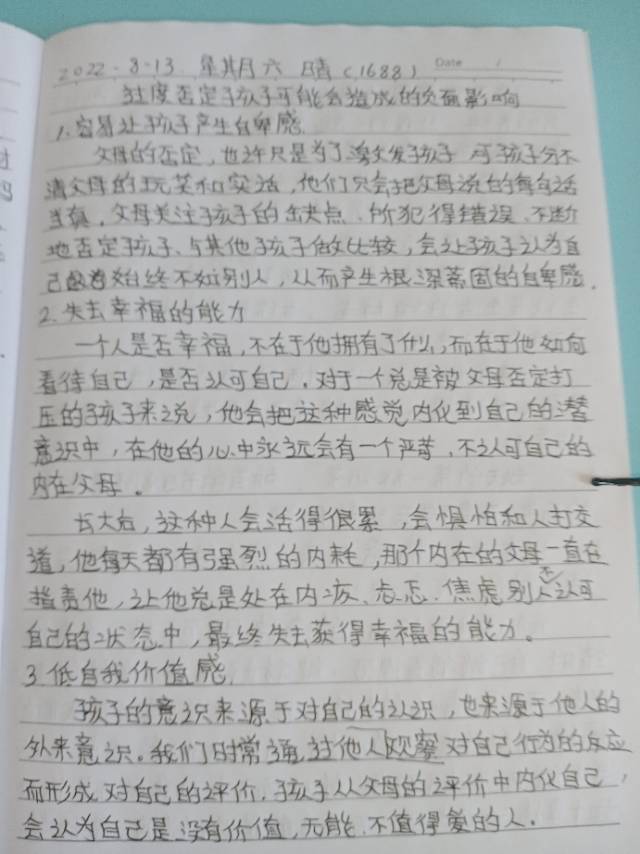 2022-3-13 星期六 晴（1688） Date /
过度否定孩子可能会造成的负面影响
1.容易让孩子产生自卑感.
父母的否定，也许只是为了激发孩子 对孩子分不
清父母的玩笑和实话，他们只会把父母说的每句话
当真，父母关注孩子的缺点、所犯得错误、不断
地否定孩子、与其他孩子做比较，会让孩子认为自
己始终不如别人，从而产生根深蒂固的自卑感.
2.失去幸福的能力
一个人是否幸福，不在于他拥有了什么，而在于他如何
看待自己，是否认可自己，对于一个总是被父母否定打
压的孩子来说，他会把这种感觉内化到自己的潜
意识中，在他的心中永远会有一个严苛，不认可自己的
内在父母。
长大后，这种人会活得很累，会惧怕和人打交
道，他每天都有强烈的内耗，那个内在的父母一直在
指责他，让他总是处在内疚、忐忑、焦虑别人否认可
自己的状态中，最终失去获得幸福的能力。
3.低自我价值感.
孩子的意识来源于对自己的认识，也来源于他人的
外来意识。我们时常通过他人观察对自己行为的反应
而形成对自己的评价，孩子从父母的评价中内化自己，
会认为自己是没有价值，无能、不值得爱的人.